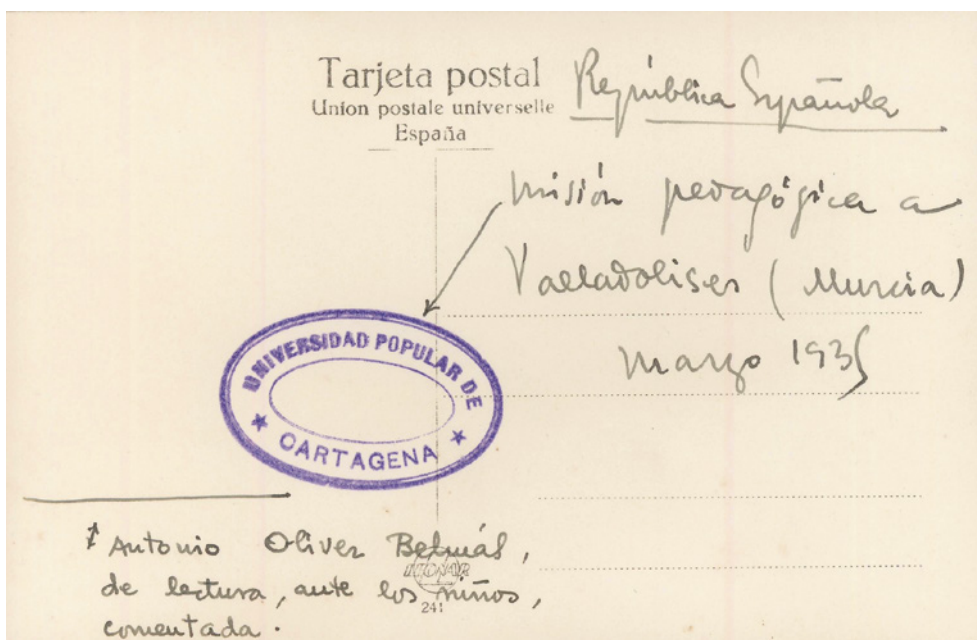 Tarjeta postal
Union postale universelle
España
República Española
Misión pedagógica a
Valladolises (Murcia)
Marzo 1935
UNIVERSIDAD POPULAR DE
CARTAGENA
Antonio Oliver Belmás,
de lectura, ante los niños,
comentada.
241